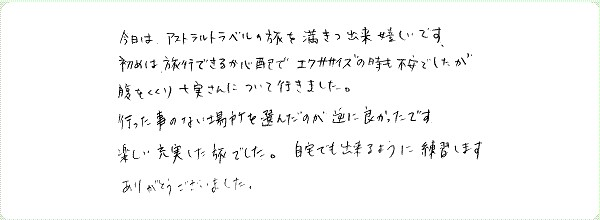 今日は、アストラルトラベルの旅を満きつ出来嬉しいです。
初めは、旅行できるか心配で エクササイズの時も不安でしたが
腹をくくり 七実さんについて行きました。
行った事のない場所を選んだのが逆に良かったです
楽しい充実した旅でした。 自宅でも出来るように練習します
ありがとうございました。